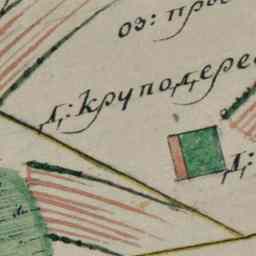 оз: прос
Д: Круподерес
Д: